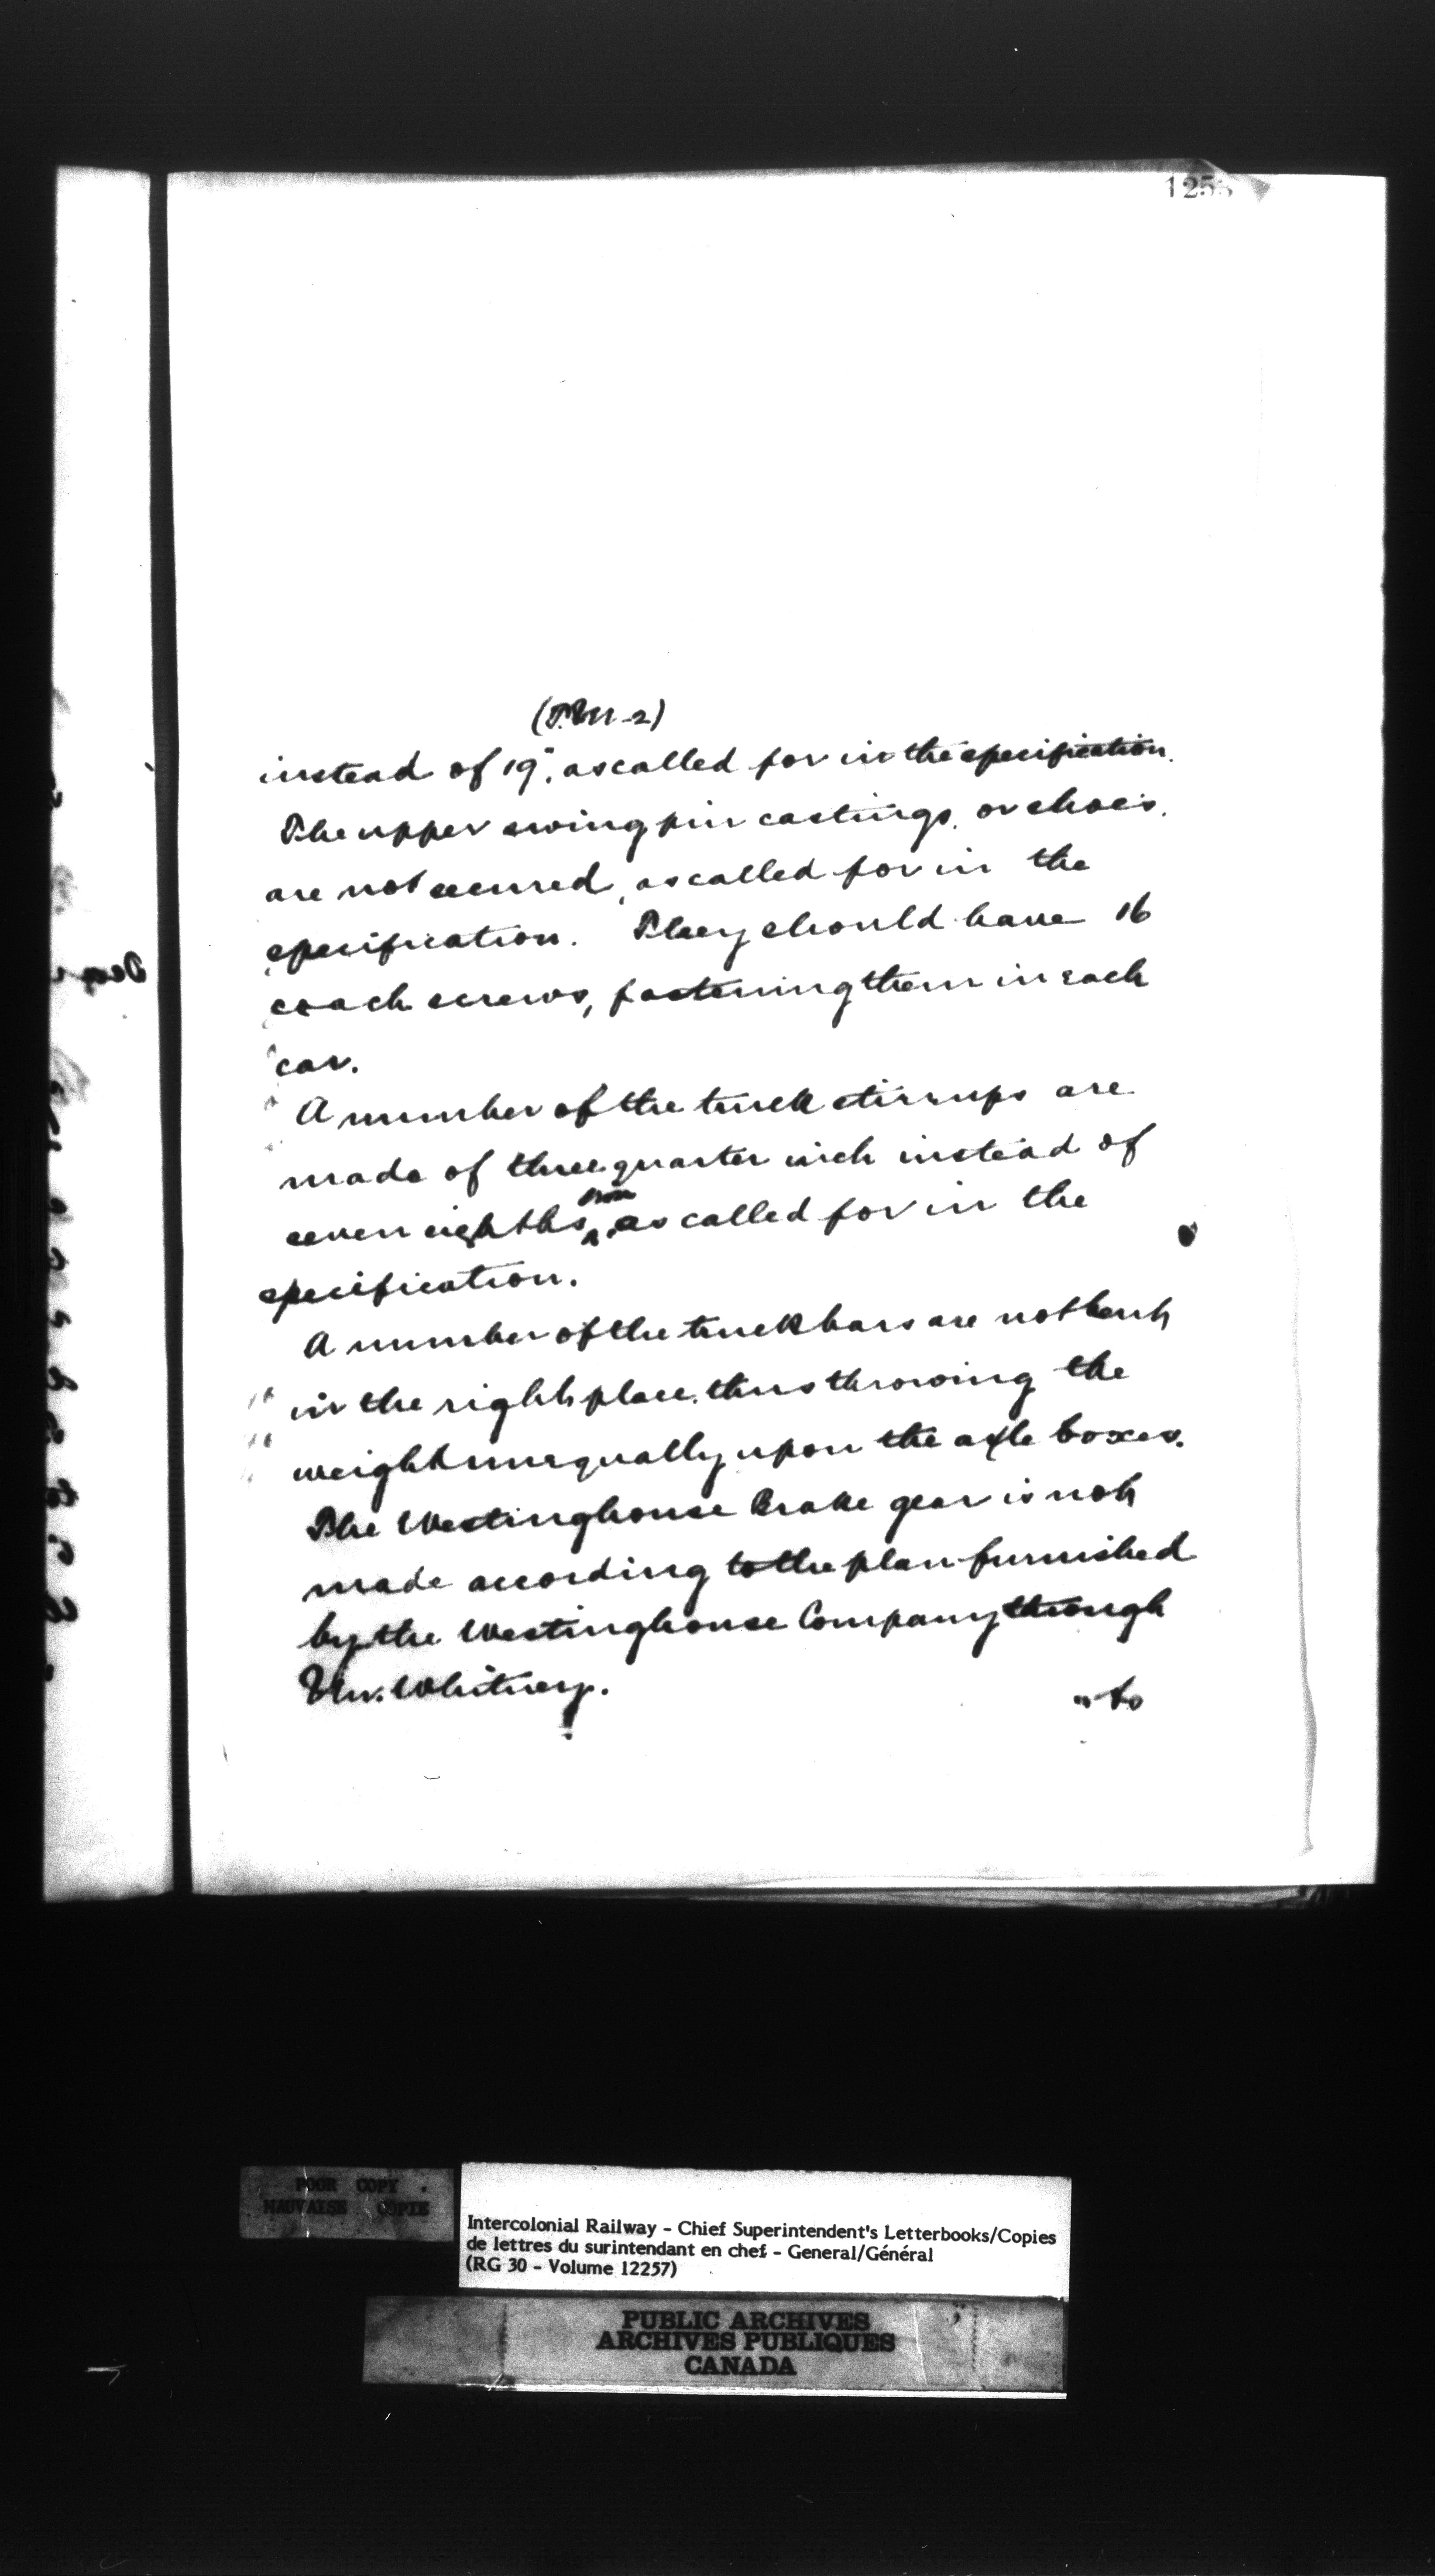 125
instead of 19", as called for in the specification.
The upper swing pin castings, or shoes,
are not secured, as called for in the
specification. They should have 16
coach screws, fastening them in each
car.
A number of the truck stirrups are
made of three quarter inch instead of
iron
seven eighths, as called for in the
specification.
A number of the truck bars are not bent
in the right place, thus throwing the
weight unequally upon the axle boxes.
The Westinghouse Brake gear is not
made according to the plan furnished
by the Westinghouse Company through
Mr. Whitney.
"to
POOR COPY
MAUVAISE COPIE
Intercolonial Railway - Chief Superintendent's Letterbooks/Copies
de lettres du surintendant en chef - General/Général
(RG 30 - Volume 12257)
PUBLIC ARCHIVES
ARCHIVES PUBLIQUES
CANADA